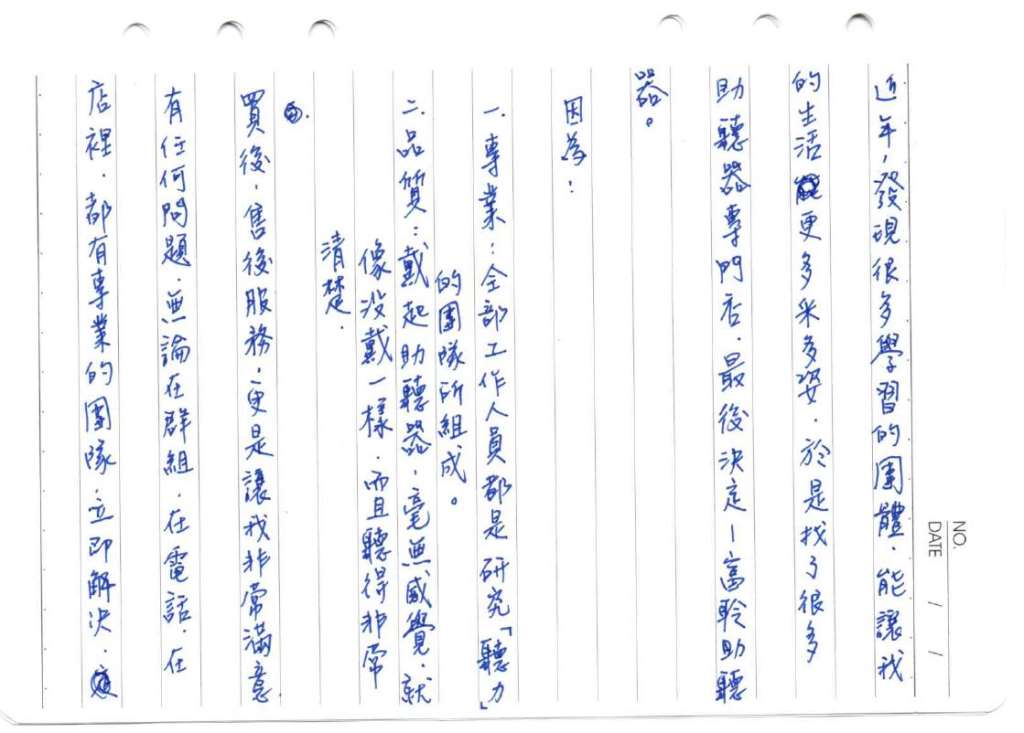 近年，發現很多學習的團體．能讓我
的生活更多采多姿．於是找了很多
助聽器專門店．最後決定—富聆助聽
器。
因為：
一．專業：全部工作人員都是研究「聽力」
的團隊所組成。
二．品質：戴起助聽器．毫無感覺．就
像沒戴一樣．而且聽得非常
清楚．
買後．售後服務．更是讓我非常滿意
有任何問題．無論在群組．在電話．在
店裡．都有專業的團隊．立即解決．
NO.
DATE / /